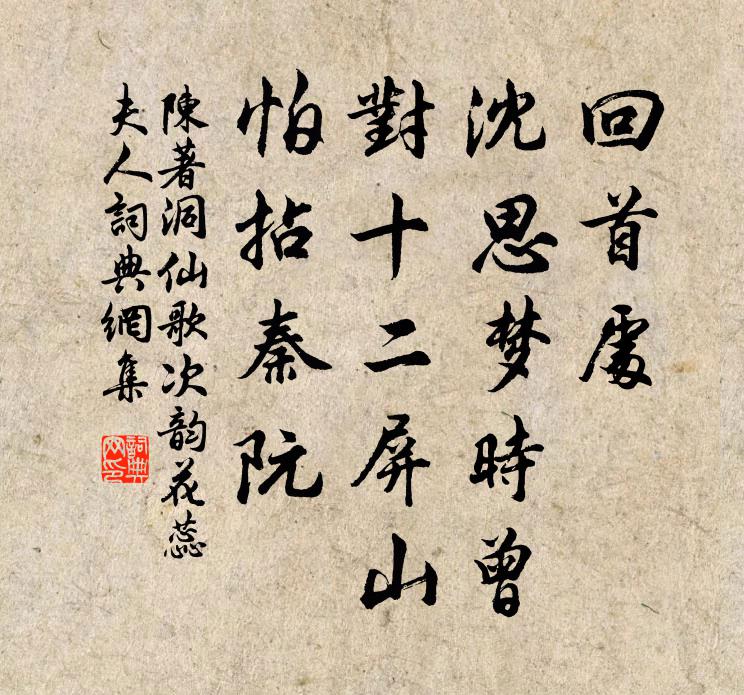 回首處
沈思梦時曾
對十二屏山
怕拈秦阮
陳著洞仙歌次韵花蕊
夫人詞典網集
詞典网印